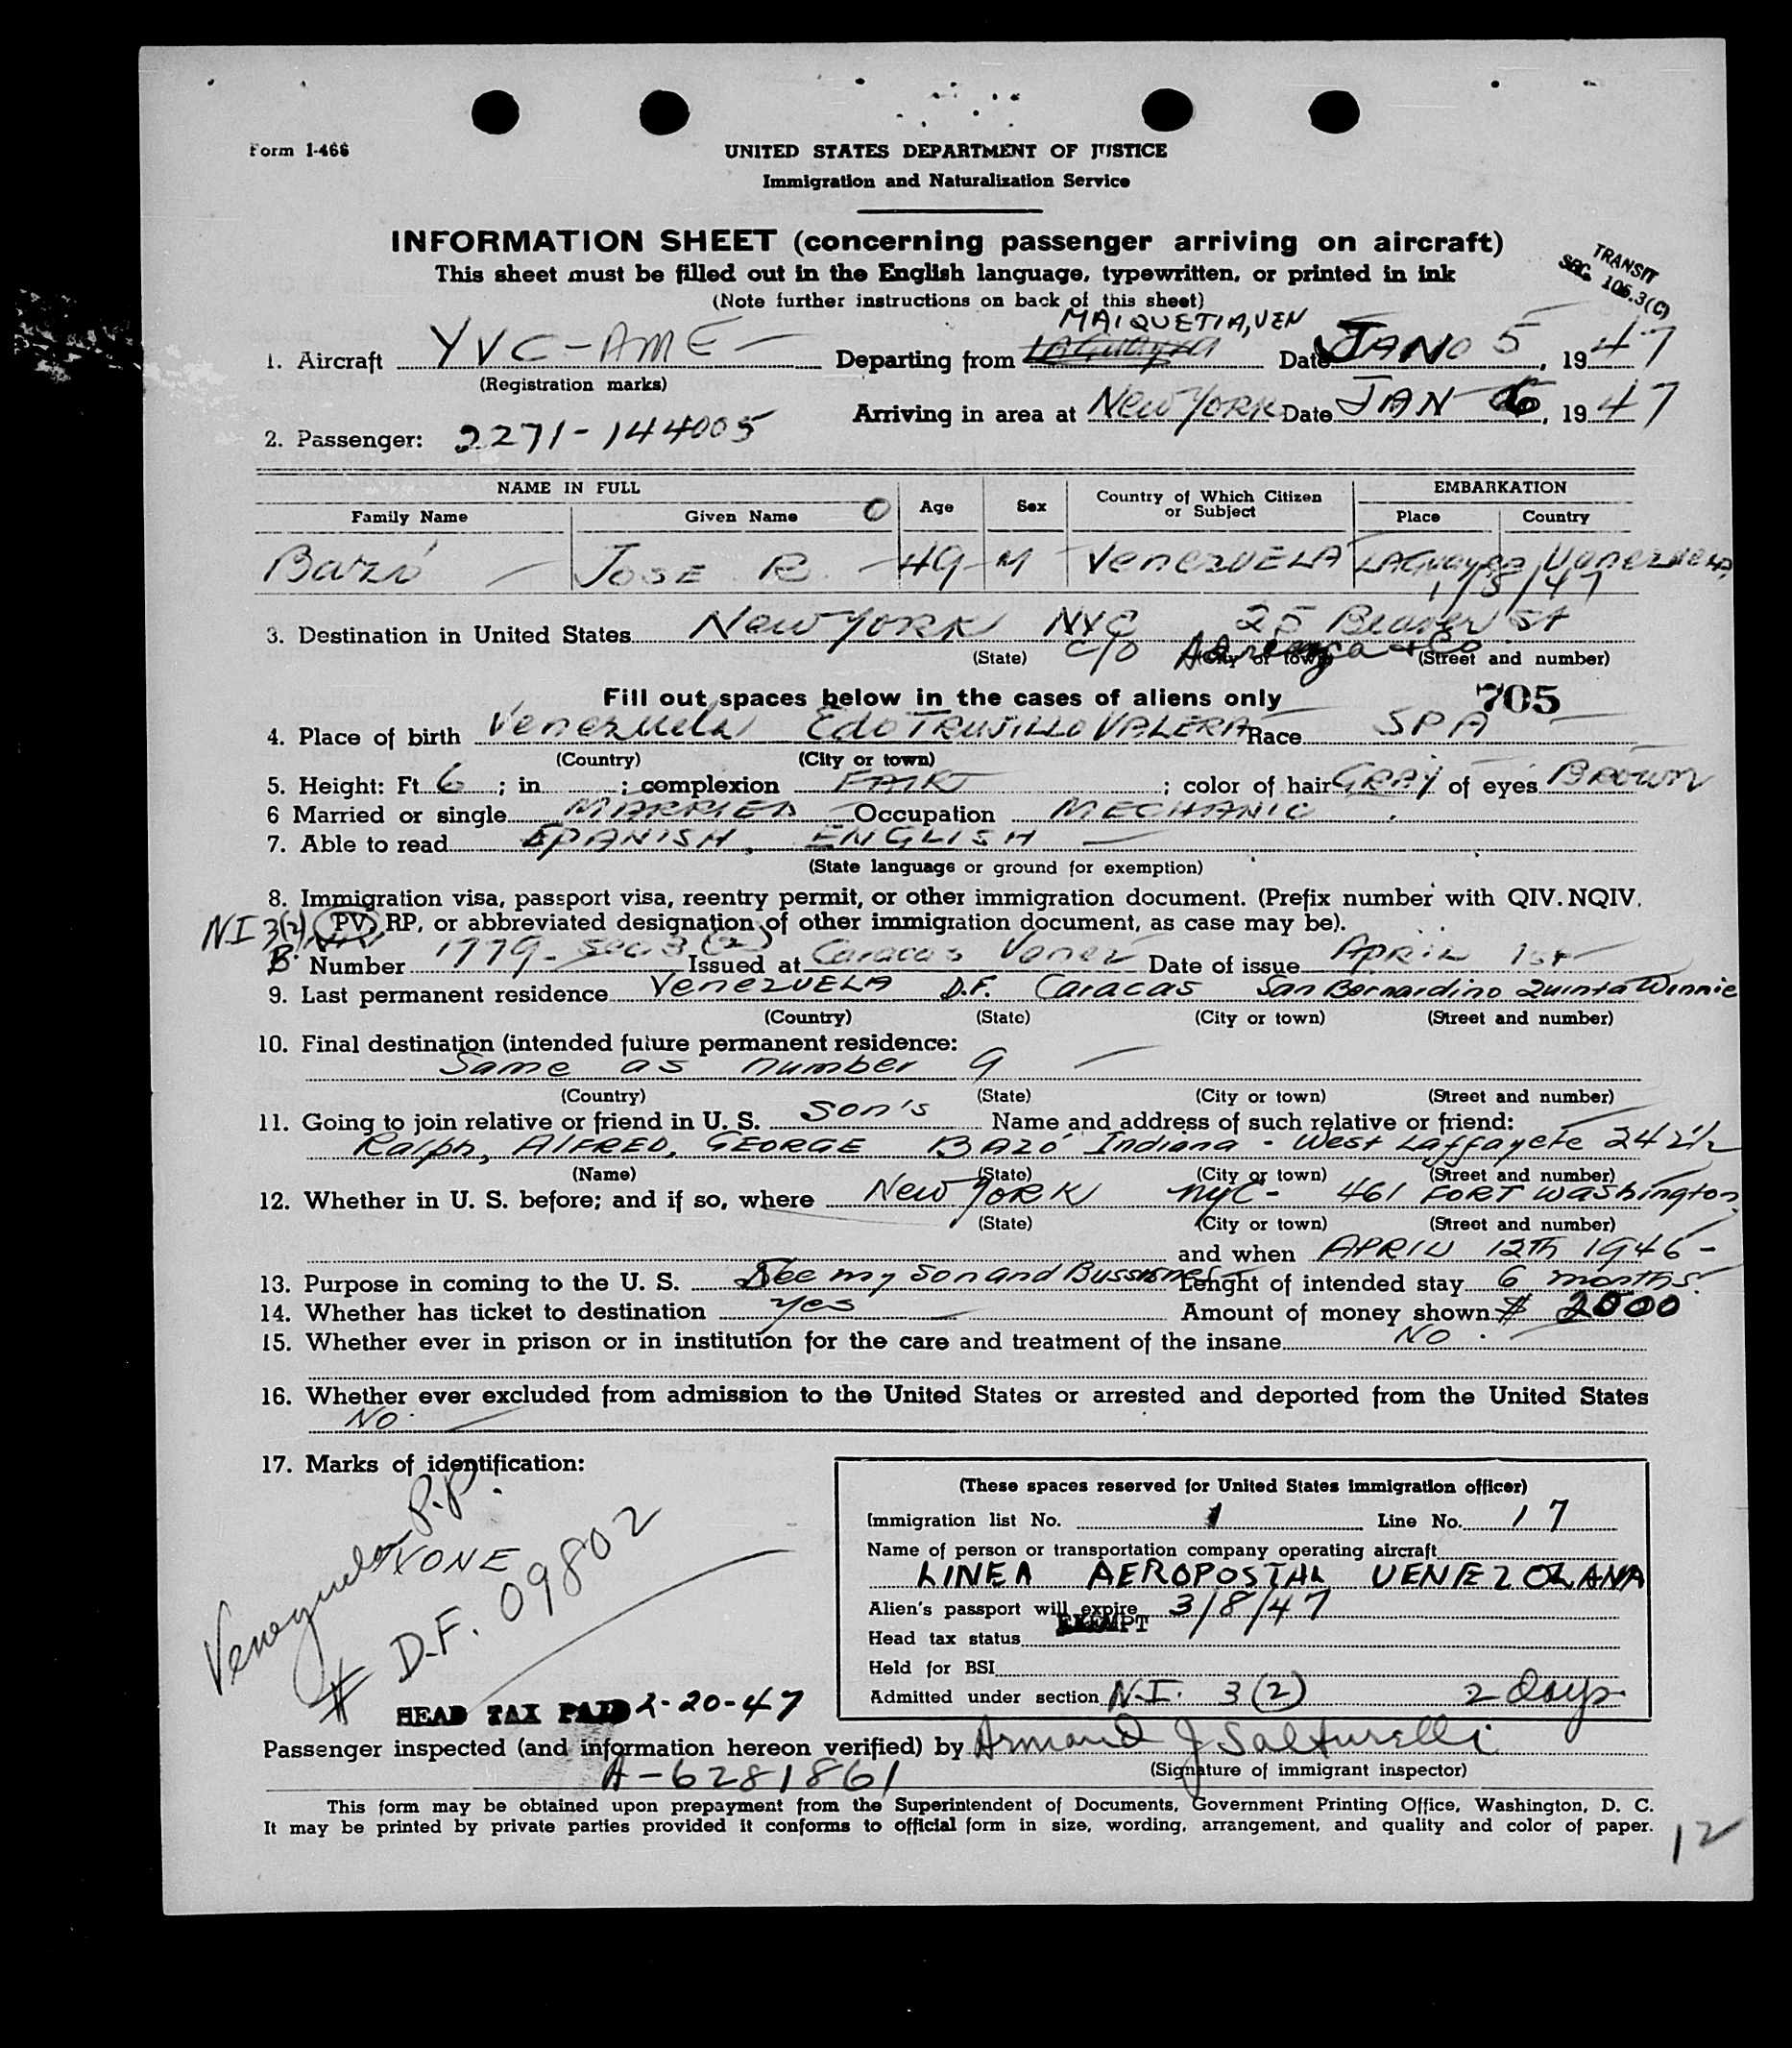 Form I-466
UNITED STATES DEPARTMENT OF JUSTICE
Immigration and Naturalization Service
INFORMATION SHEET (concerning passenger arriving on aircraft)
This sheet must be filled out in the English language, typewritten, or printed in ink
(Note further instructions on back of this sheet)
TRANSIT
SEC. 105.3(C)
MAIQUETIA, VEN
1. Aircraft YVC-AME Departing from LAGuayra Date JAN 5, 1947
(Registration marks)
Arriving in area at New York Date JAN 6, 1947
2. Passenger: 2271-144005
NAME IN FULL Age Sex Country of Which Citizen or Subject EMBARKATION
Family Name Given Name O Place Country
Bazó JOSE R. 49 M VENEZUELA LAGuayra Venezuela
1/5/47
3. Destination in United States New York NYC 25 Beaver St
(State) (City or town) (Street and number)
c/o & Co
Fill out spaces below in the cases of aliens only 705
4. Place of birth Venezuela Edo TRUJILLO VALERA Race SPA
(Country) (City or town)
5. Height: Ft 6; in ; complexion FAIR; color of hair GRAY of eyes BROWN
6 Married or single MARRIED Occupation MECHANIC
7. Able to read SPANISH, ENGLISH
(State language or ground for exemption)
8. Immigration visa, passport visa, reentry permit, or other immigration document. (Prefix number with QIV. NQIV.
NI 3(2) PV, RP, or abbreviated designation of other immigration document, as case may be).
B. Number 1779 - Sec 3(2) Issued at Caracas Venez Date of issue April 1st
9. Last permanent residence VENEZUELA D.F. Caracas San Bernardino Quinta Winnie
(Country) (State) (City or town) (Street and number)
10. Final destination (intended future permanent residence:
Same as number 9
(Country) (State) (City or town) (Street and number)
11. Going to join relative or friend in U. S. Son's Name and address of such relative or friend:
Ralph, ALFRED, GEORGE BAZÓ Indiana - West Laffayete 242 1/2
(Name) (State) (City or town) (Street and number)
12. Whether in U. S. before; and if so, where New York NYC - 461 FORT Washington
(State) (City or town) (Street and number)
and when APRIL 12Th 1946 -
13. Purpose in coming to the U. S. See my Son and Bussines Lenght of intended stay 6 months.
14. Whether has ticket to destination yes Amount of money shown $ 2000
15. Whether ever in prison or in institution for the care and treatment of the insane No.
16. Whether ever excluded from admission to the United States or arrested and deported from the United States
No.
17. Marks of identification:
NONE
Venezuelan P.P.
# D.F. 09802
(These spaces reserved for United States immigration officer)
Immigration list No. 1 Line No. 17
Name of person or transportation company operating aircraft
LINEA AEROPOSTAL VENEZOLANA
Alien's passport will expire 3/8/47
Head tax status EXEMPT
Held for BSI
Admitted under section N.I. 3(2) 2 days
HEAD TAX PAID 2-20-47
Passenger inspected (and information hereon verified) by Armand J Salturelli
(Signature of immigrant inspector)
A-6281861
This form may be obtained upon prepayment from the Superintendent of Documents, Government Printing Office, Washington, D. C.
It may be printed by private parties provided it conforms to official form in size, wording, arrangement, and quality and color of paper.
12